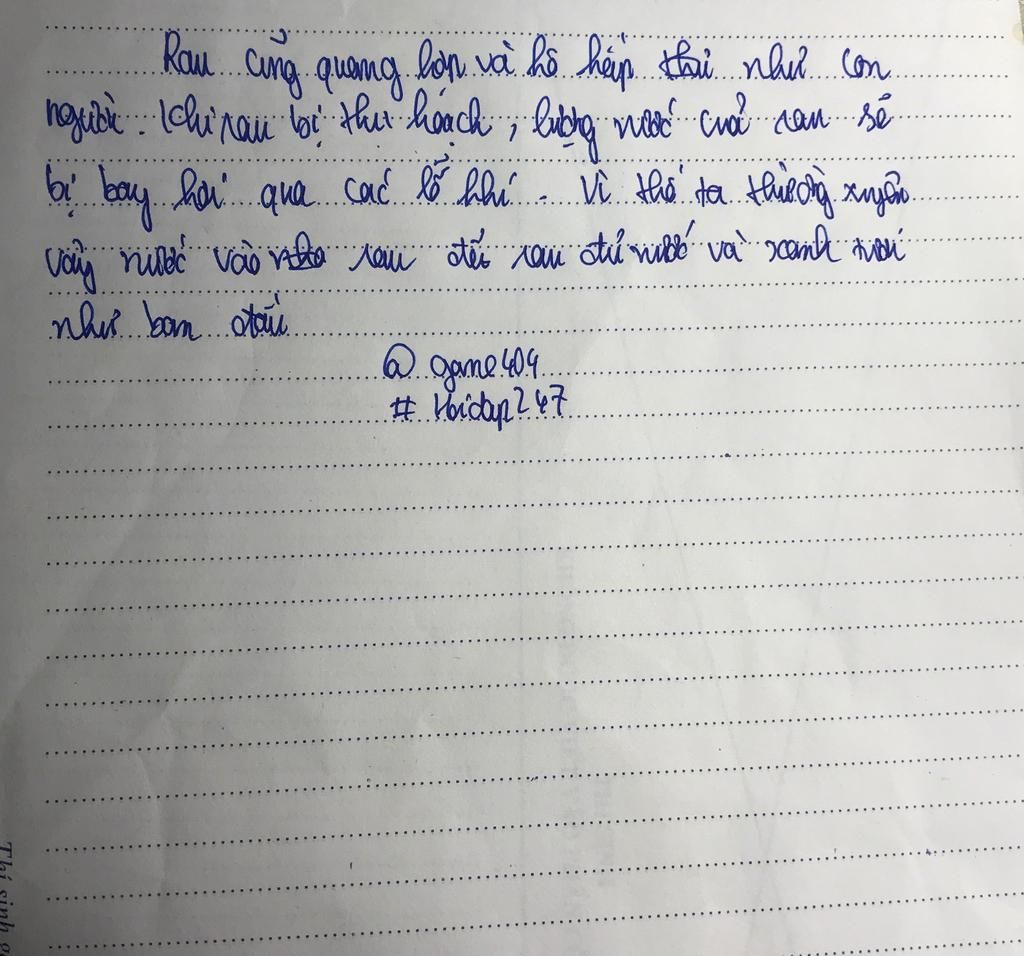 Rau cũng quang hợp và hô hấp như con
người. Khi rau bị thu hoạch, lượng nước của rau sẽ
bị bay hơi qua các lỗ khí. Vì thế ta thường xuyên
vảy nước vào rau để rau đủ nước và xanh tươi
như ban đầu
@ game404
# Hoidap247
Thí sinh